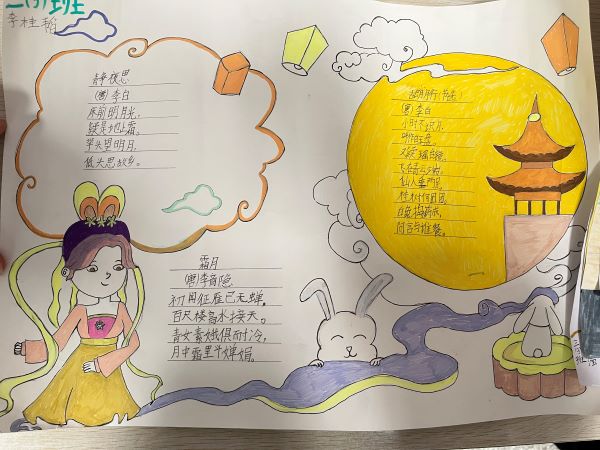 二(3)班
李桂
静夜思
(唐)李白
床前明月光,
疑是地上霜。
举头望明月,
低头思故乡。
古朗月行(节选)
(唐)李白
小时不识月,
呼作白玉盘。
又疑瑶台镜,
飞在青云端。
仙人垂两足,
桂树何团团。
白兔捣药成,
问言与谁餐。
霜月
(唐)李商隐
初闻征雁已无蝉,
百尺楼高水接天。
青女素娥俱耐冷,
月中霜里斗婵娟。